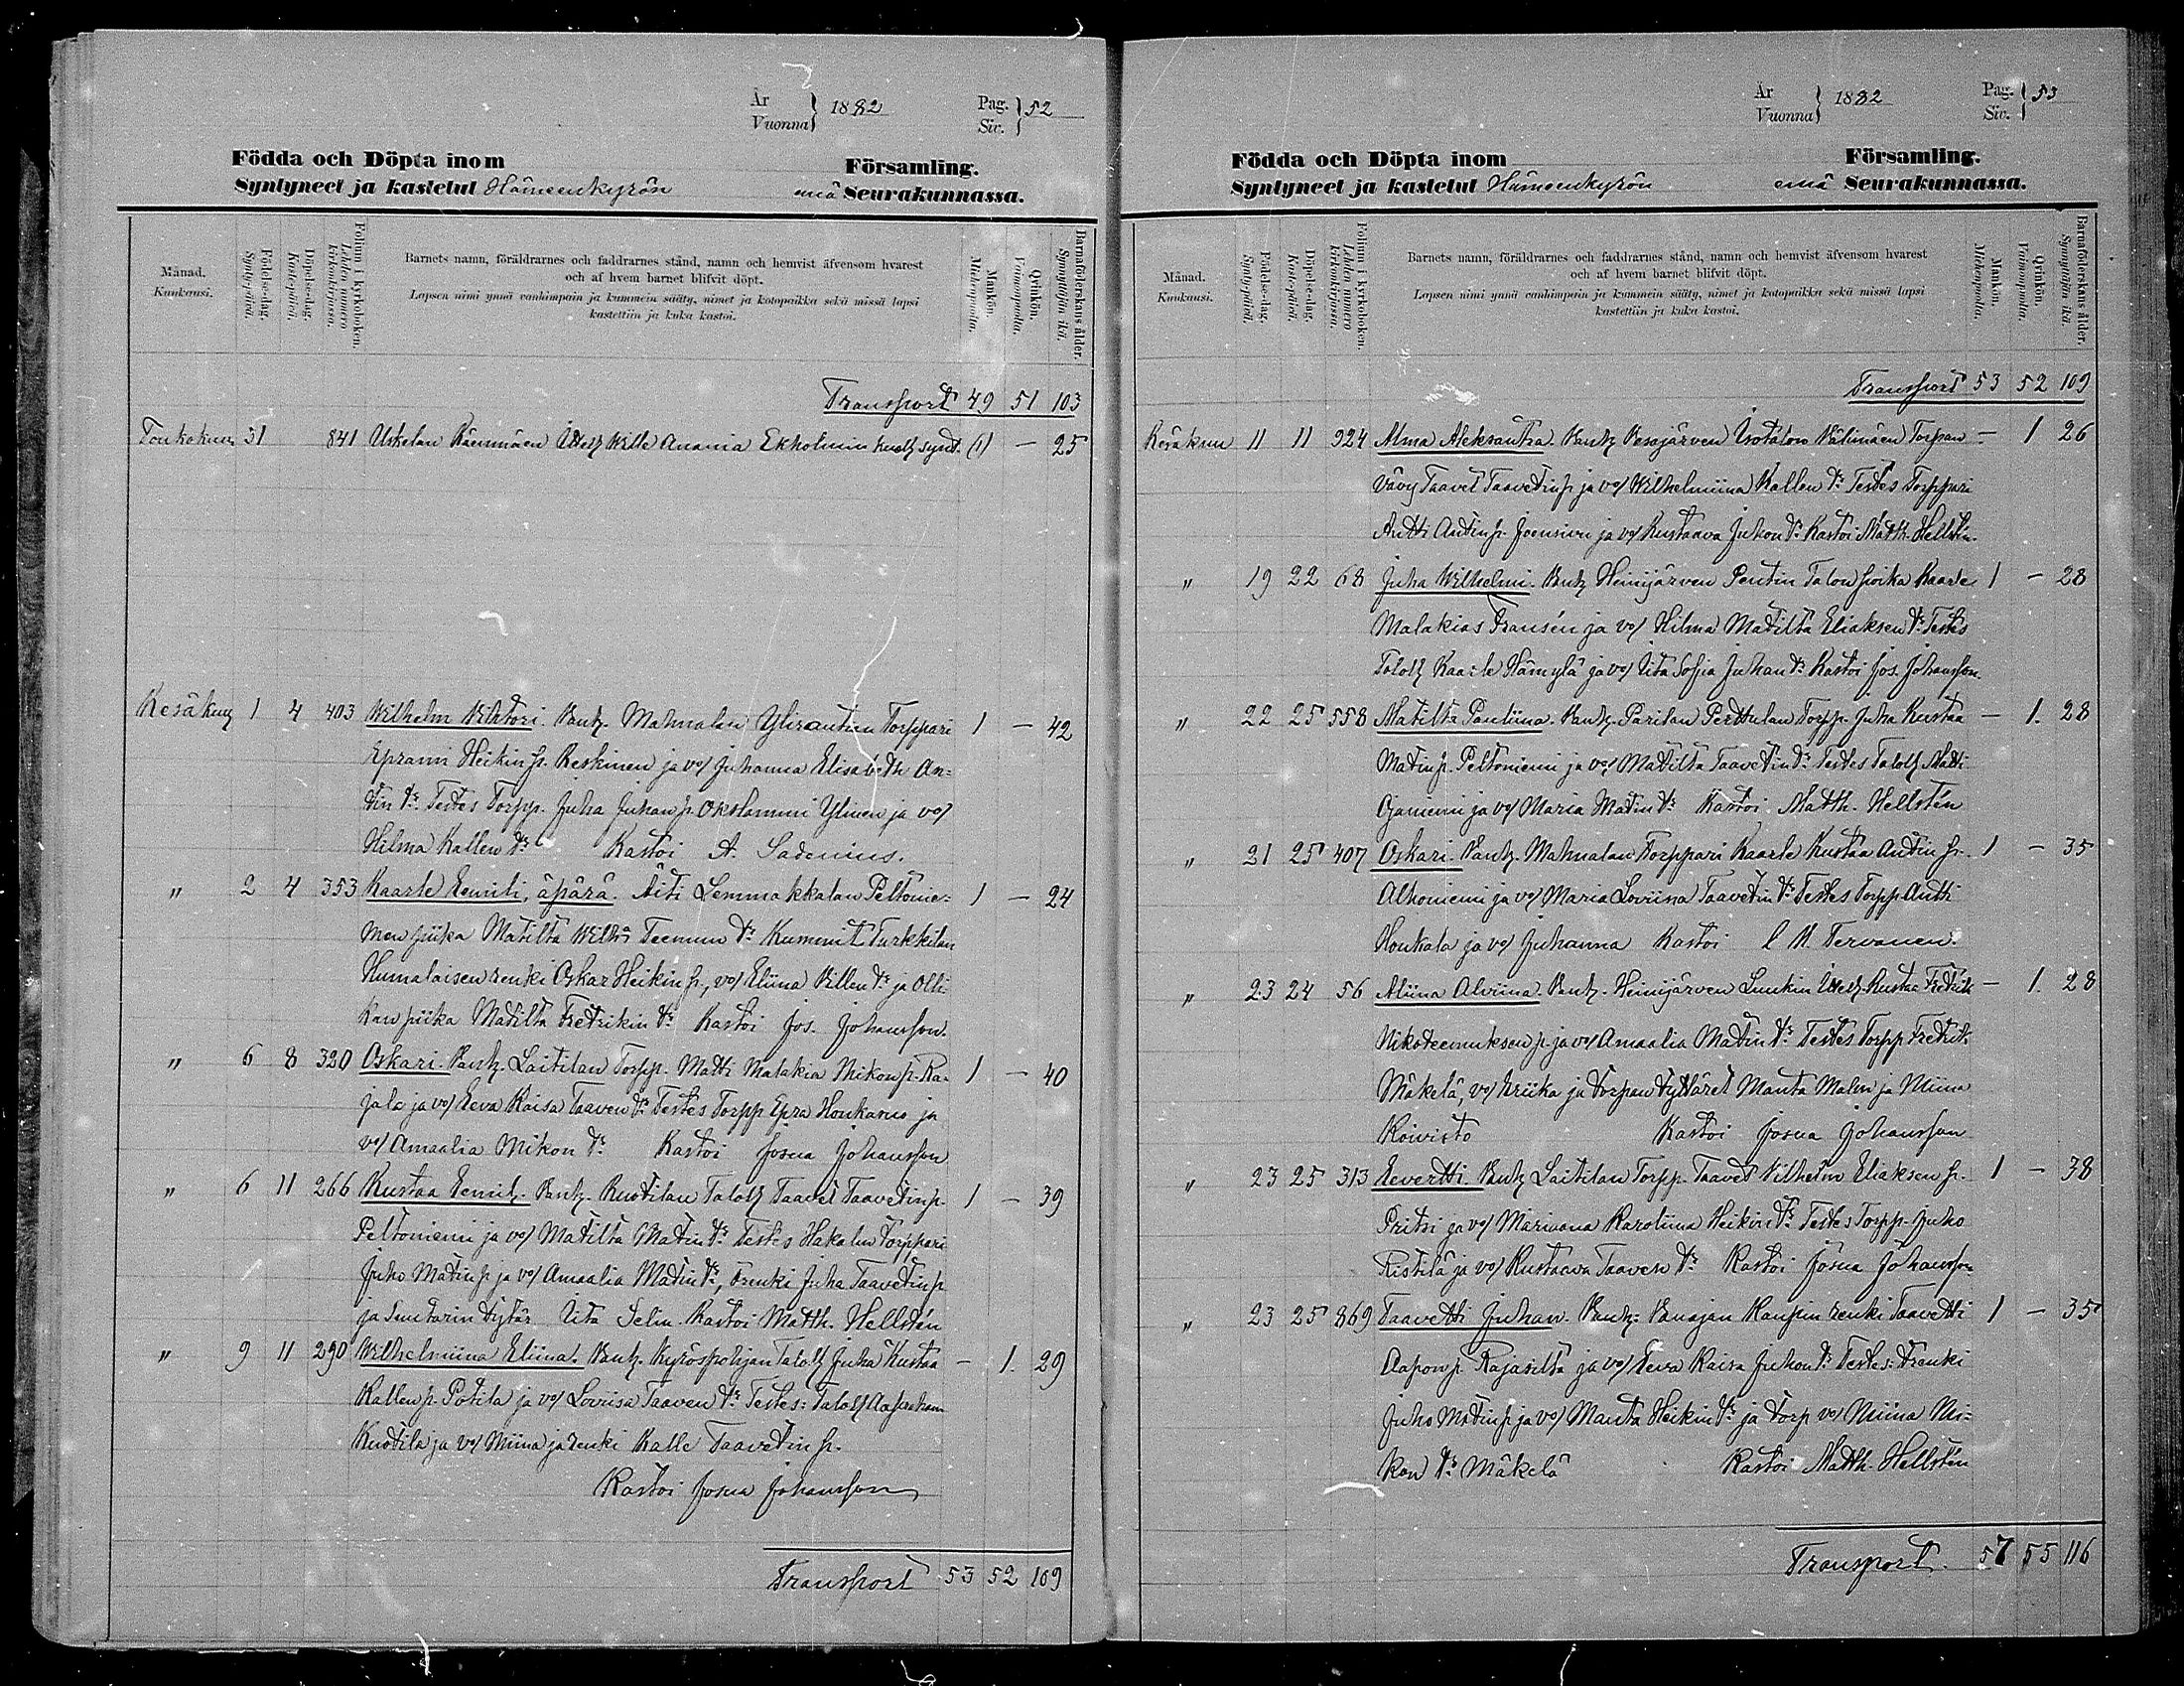 År
Vuonna } 1882
Pag.
Siv. } 52
Födda och Döpta inom Församling.
Syntyneet ja kastetut Hämeenkyrön emä Seurakunnassa.
Månad.
Kuukausi.
Födelse-dag.
Syntypäivä.
Döpelse-dag.
Kaste-päivä.
Folium i kyrkoboken.
Lehden numero
kirkonkirjassa.
Barnets namn, föräldrarnes och faddrarnes stånd, namn och hemvist äfvensom hvarest
och af hvem barnet blifvit döpt.
Lapsen nimi ynnä vanhimpain ja kummein sääty, nimet ja kotopaikka sekä missä lapsi
kastettiin ja kuka kastoi.
Mankön.
Miehenpuolia.
Qvinkön.
Vaimonpuolia.
Barnaföderskans ålder.
Synnyttäjän ikä.
Transport 49 51 103
Toukokuu 31 841 Uskelan Ekholmin (1) — 25
Kesäkuu 1 4 403 Wilhelm Vihtori. Vanh. Mahnalan Torppari 1 — 42
Eprami Heikin p. Keskinen ja vo/ Juhanna Elisabeth An-
tin tr Testes Torpp. Juha Juhan p. Ylinen ja vo/
Hilma Kallen tr Kastoi A. Sadenius.
" 2 4 353 Kaarle Eemili, äpärä. Äiti Lemmakkalan Peltonie- 1 — 24
men piika Matilta Teemun tr Kummit Turkkilan
Humalaisen renki Oskar Heikin p., vo/ Eliina Villen tr ja Olli-
kan piika Matilta Fretrikin tr Kastoi Jos. Johansson.
" 6 8 320 Oskari. Vanh. Laitilan Torpp. Matti Malakia Mikon p. Ra- 1 — 40
jala ja vo/ Eeva Kaisa Taaven tr Testes Torpp Epra Honkanen ja
vo/ Amaalia Mikon tr Kastoi Josua Johansson
" 6 11 266 Kustaa Eemil. Vanh. Kuotilan Talol. Taavet Taavetin p. 1 — 39
Peltoniemi ja vo/ Matilta Matin tr Testes Hakalan Torppari
Juho Matin p. ja vo/ Amaalia Matin tr, renki Juha Taavetin p
ja Suutarin tytär Iita Selin. Kastoi Matth. Hellstén
" 9 11 290 Wilhelmiina Eliina. Vanh. Kyröspohjan Talol. Juha Kustaa — 1. 29
Kallen p. Potila ja vo/ Loviisa Taaven tr Testes: Talol. Aapraham
Kuotila ja vo/ Miina ja renki Kalle Taavetin p.
Kastoi Josua Johansson
Transport 53 52 109
År
Vuonna } 1882
Pag.
Siv. } 53
Födda och Döpta inom Församling.
Syntyneet ja kastetut Hämeenkyrön emä Seurakunnassa.
Månad.
Kuukausi.
Födelse-dag.
Syntypäivä.
Döpelse-dag.
Kaste-päivä.
Folium i kyrkoboken.
Lehden numero
kirkonkirjassa.
Barnets namn, föräldrarnes och faddrarnes stånd, namn och hemvist äfvensom hvarest
och af hvem barnet blifvit döpt.
Lapsen nimi ynnä vanhimpain ja kummein sääty, nimet ja kotopaikka sekä missä lapsi
kastettiin ja kuka kastoi.
Mankön.
Miehenpuolia.
Qvinkön.
Vaimonpuolia.
Barnaföderskans ålder.
Synnyttäjän ikä.
Transport 53 52 109
Kesäkuu 11 11 924 Alma Aleksantra. Vanh. Vesajärven Isotalon Välimäen Torpan — 1 26
Vävy Taavet Taavetin p ja vo/ Wilhelmiina Kallen tr Testes Torppari
Antti Antin p. Joensuu ja vo/ Kustaava Juhon tr Kastoi Matth. Hellstén.
" 19 22 68 Juha Wilhelmi. Vanh. Heinijärven Pentin Talon poika Kaarle 1 — 28
Malakias Fransén ja vo/ Hilma Matilta Eliaksen tr Testes
Talol. Kaarle Hämylä ja vo/ Iita Sofia Juhan tr Kastoi Jos. Johansson.
" 22 25 558 Matilta Pauliina. Vanh. Parilan Perttulan Torpp. Juha Kustaa — 1. 28
Matin p. Peltoniemi ja vo/ Matilta Taavetin tr Testes Talol. Matti
Ojaniemi ja vo/ Maria Matin tr Kastoi Matth. Hellstén
" 21 25 407 Oskari. Vanh. Mahnalan Torppari Kaarle Kustaa Antin p. 1 — 35
Alhoniemi ja vo/ Maria Loviina Taavetin tr Testes Torpp Antti
Honkala ja vo/ Juhanna Kastoi Tervonen.
" 23 24 56 Aliina Alviina. Vanh. Heinijärven Luukin Kustaa Fretrik — 1. 28
Nikoteemuksen p. ja vo/ Amaalia Matin tr Testes Torpp Fretrik
Mäkelä, vo/ Eriika ja torpan tyttäret Manta Malm ja Miina
Koivisto Kastoi Josua Johansson
" 23 25 313 Eevertti. Vanh. Laitilan Torpp. Taavet Vilhelm Eliaksen p. 1 — 38
Pritsi ja vo/ Mariaana Karoliina Heikin tr Testes Torpp. Juho
Ristilä ja vo/ Kustaava Taaven tr Kastoi Josua Johansson
" 23 25 869 Taavetti Juhan. Vanh: Vanajan Kaupin renki Taavetti 1 — 35
Aapon p. Rajasilta ja vo/ Eeva Kaisa Juhon tr Testes: renki
Juho Matin p ja vo/ Manta Heikin tr ja torp vo/ Miina Mi-
kon tr Mäkelä Kastoi Matth. Hellstén
Transport 57 55 116